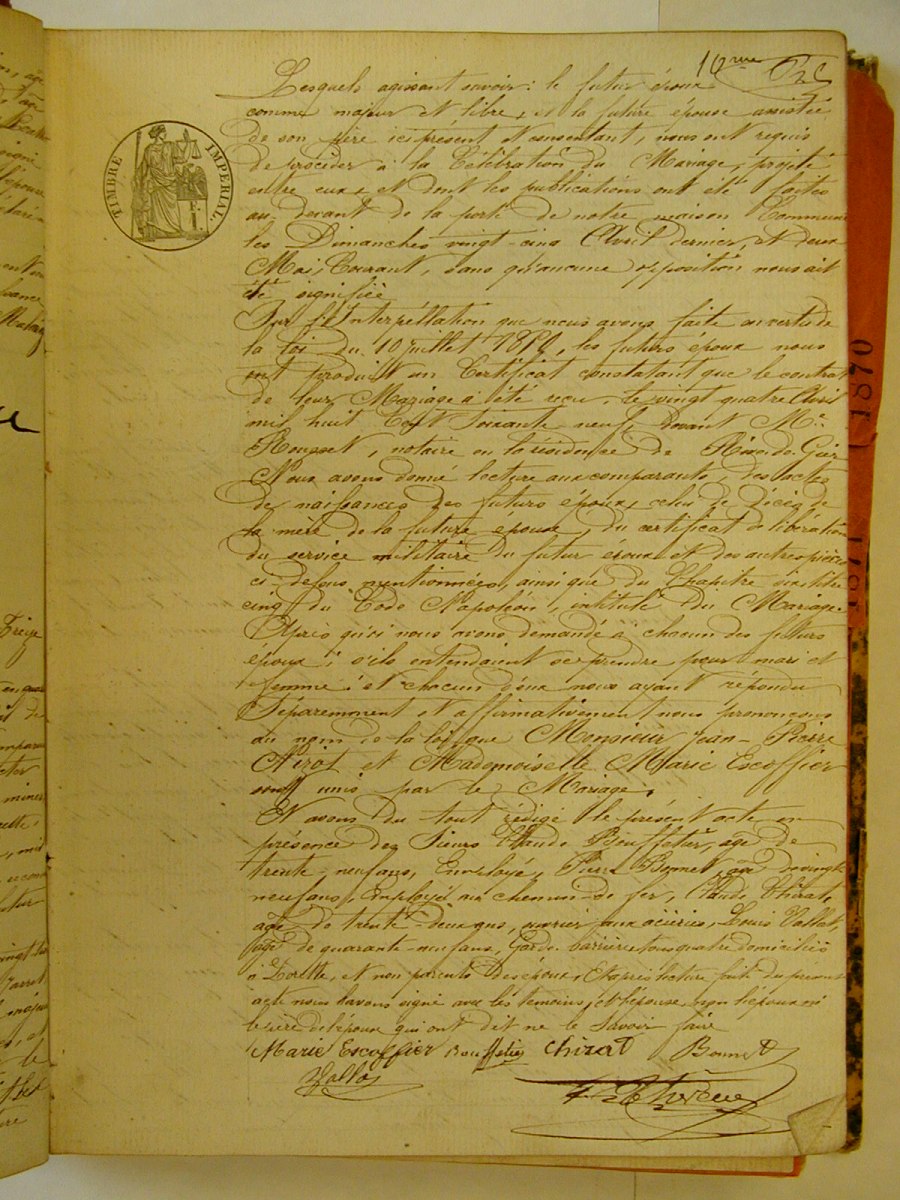 10me
TIMBRE IMPERIAL
Lesquels agissant savoir : le futur époux
comme majeur et libre, et la future épouse assistée
de son père ici présent et consentant, nous ont requis
de procéder à la Célébration du Mariage, projeté
entre eux, et dont les publications ont été faites
au devant de la porte de notre maison Commune
les Dimanches vingt-cinq Avril dernier, et deux
Mai, Courant, sans qu'aucune opposition nous ait
été signifiée
Sur l'Interpéllation que nous avons faite en vertu de
la loi du 10 juillet 1850, les futurs époux nous
ont produit un Certificat constatant que le contrat
de leur Mariage a été reçu, le vingt quatre Avril
mil huit Cent Soixante neuf, devant Me
Rousset, notaire en la résidence de Rive-de-Gier
Nous avons donné lecture aux comparants, des actes
de naissances des futurs époux, celui de Décès de
la mère de la future épouse, du certificat de libération
du service militaire du futur époux et des autres pièces
ci-dessus mentionnées, ainsi que du Chapitre six titre
cinq du Code Napoléon, intitulé du Mariage.
Après qu'oi nous avons demandé à chacun des futurs
époux, s'ils entendaient se prendre pour mari et
femme, et chacun d'eux nous ayant répondu
Séparemment et affirmativement, nous prononçons
au nom de la loi, que Monsieur Jean-Pierre
Nizot et Mademoiselle Marie Escoffier
sont unis par le Mariage.
Et avons du tout rédigé le présent acte en
présence des Sieurs Claude Bouffetier, âgé de
trente-neuf ans, Employé, Pierre Bonnet, âgé de vingt
neuf ans, Employé au chemin de fer, Claude Chirat,
âgé de trente-deux ans, ouvrier aux aciéries, Louis Vallat,
âgé de quarante-neuf ans, Garde-barrière, tous quatre domiciliés
à Lorette, et non parents des époux, Et après lecture faite du présent
acte nous l'avons signé avec les témoins, et l'épouse, non l'époux ni
le père de l'époux qui ont dit ne le Savoir faire
Marie Escoffier Bouffetier Chirat Bonnet
Vallat
1870
1871